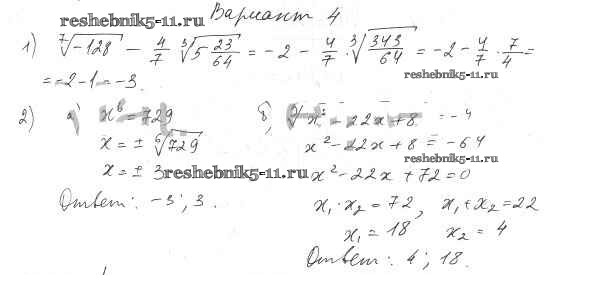 Вариант 4
reshebnik5-11.ru
1) ⁷√-128 - 4/7 ³√5 23/64 = -2 - 4/7 · ³√343/64 = -2 - 4/7 · 7/4 =
reshebnik5-11.ru
= -2 - 1 = -3.
2) а) x⁶ = 729
x = ± ⁶√729
x = ± 3
reshebnik5-11.ru
Ответ: -3; 3.
б) ³√x² - 22x + 8 = -4
x² - 22x + 8 = -64
reshebnik5-11.ru
x² - 22x + 72 = 0
x₁ · x₂ = 72, x₁ + x₂ = 22
x₁ = 18 x₂ = 4
Ответ: 4; 18.